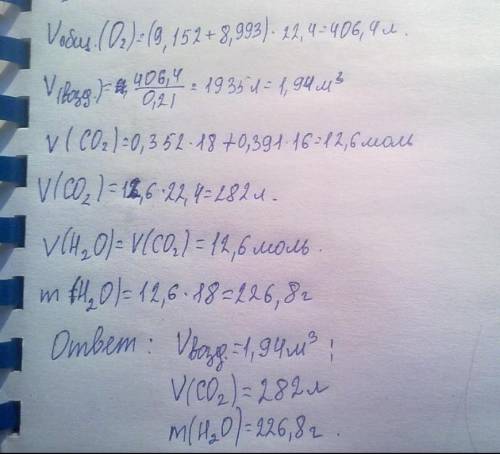 Vобщ.(O₂)=(9,152+8,993)·22,4=406,4л.
V(возд.)=406,4/0,21=1935л=1,94м³
ν(CO₂)=0,352·18+0,391·16=12,6моль
V(CO₂)=12,6·22,4=282л.
ν(H₂O)=ν(CO₂)=12,6моль.
m(H₂O)=12,6·18=226,8г
Ответ: Vвозд.=1,94м³;
V(CO₂)=282л
m(H₂O)=226,8г.